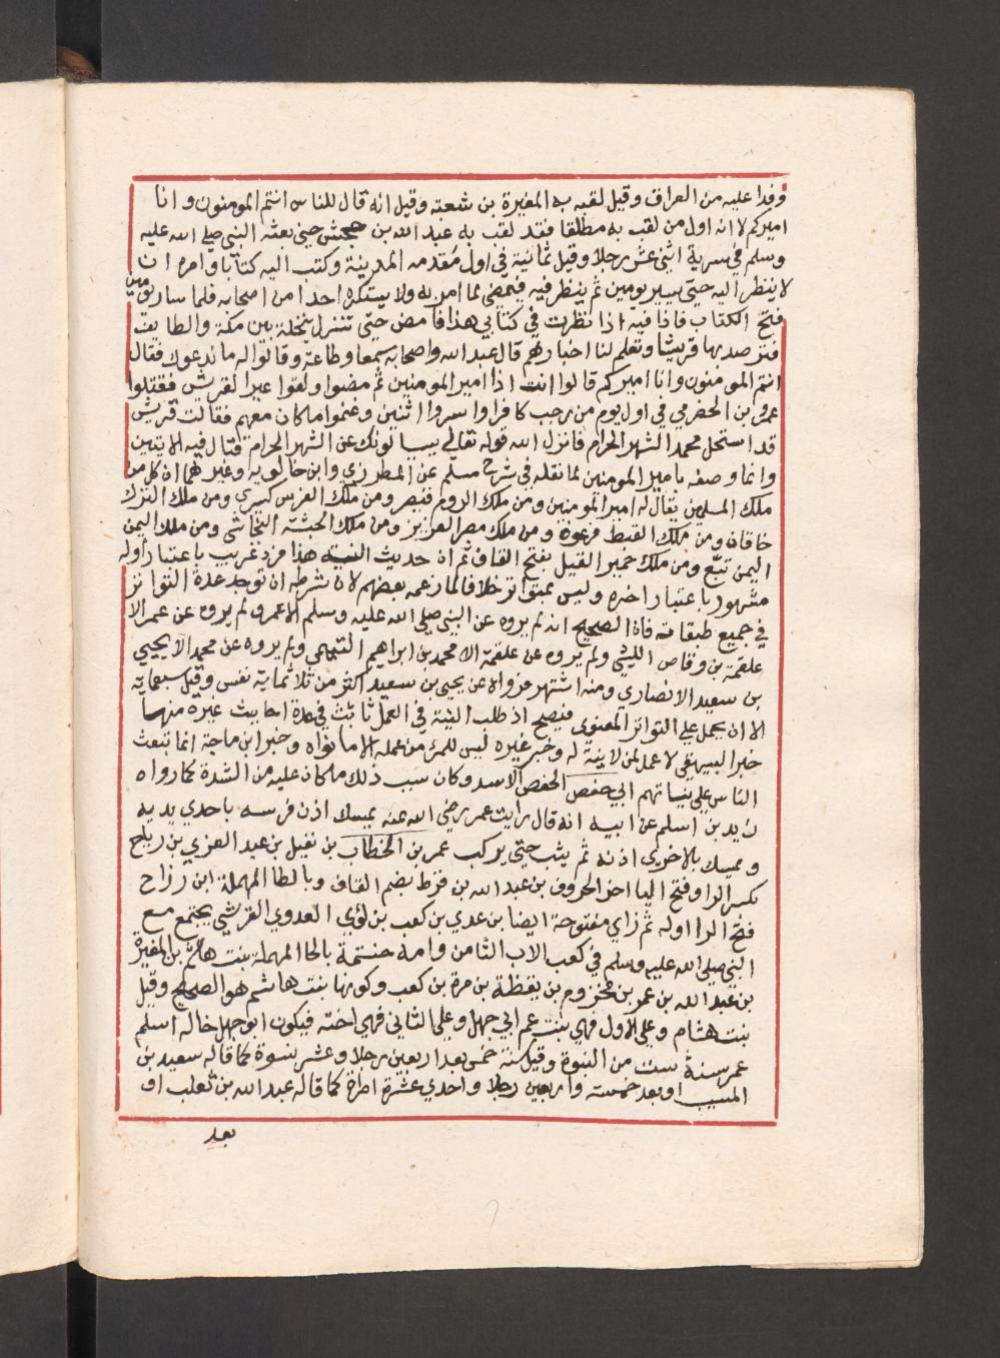 وفدا عليه من العراق وقيل لقبه به المغيرة بن شعبة وقيل انه قال للناس انتم المومنون وانا
اميركم لا انه اول من لقب به مطلقا فقد لقب به عبد الله بن جحش حين بعثه النبي صلي الله عليه
وسلم في سرية اثني عشر رجلا وقيل ثمانية في اول مقدمه المدينة وكتب اليه كتابا وامره ان
لا ينظر اليه حتي يسير يومين ثم ينظر فيه فيمضي لما امر به ولا يستكره احدا من اصحابه فلما سار يومين
فتح الكتاب فاذا فيه اذا نظرت في كتابي هذا فامض حتي تنزل نخلة بين مكة والطايف
فترصد بها قريشا وتعلم لنا اخبارهم قال عبد الله واصحابه سمعا وطاعة وقالوا له ما ندعوك فقال
انتم المومنون وانا اميركم قالوا انت اذا امير المومنين ثم مضوا ولقوا عيرا لقريش فقتلوا
عمرو بن الحضرمي في اول يوم من رجب كافرا واسروا اثنين وغنموا ما كان معهم فقالت قريش
قد استحل محمد الشهر الحرام فانزل الله قوله تعالي يسالونك عن الشهر الحرام قتال فيه الايتين
وانما وصفه بامير المومنين لما نقله في شرح مسلم عن المطرزي وابن خالويه وغيرهما ان كل من
ملك المسلمين يقال له امير المومنين ومن ملك الروم قيصر ومن ملك الفرس كسري ومن ملك الترك
خاقان ومن ملك القبط فرعون ومن ملك مصر العزيز ومن ملك الحبشة النجاشي ومن ملك اليمن
اليمن تبع ومن ملك حمير القيل بفتح القاف ثم ان حديث النية هذا فرد غريب باعتبار اوله
مشهور باعتبار اخره وليس بمتواتر خلافا لما زعمه بعضهم لان شرطه ان توجد عدة التواتر
في جميع طبقاته فان الصحيح انه لم يروه عن النبي صلي الله عليه وسلم الا عمر ولم يروه عن عمر الا
علقمة بن وقاص الليثي ولم يروه عن علقمة الا محمد بن ابراهيم التيمي ولم يروه عن محمد الا يحيي
بن سعيد الانصاري ومنه اشتهر فرواه عن يحيي بن سعيد اكثر من ثلاثماية نفس وقيل سبعماية
الا ان يحمل علي التواتر المعنوي فيصح اذ طلب النية في العمل ثابت في عدة احاديث غيره منها
خبر البيهقي لا عمل لمن لا نية له وخبر غيره ليس للمرء من عمله الا ما نواه وخبر ابن ماجة انما تبعث
الناس علي نياتهم ابي حفص الحفص الاسد وكان سبب ذلك ما كان عليه من الشدة كما رواه
زيد بن اسلم عن ابيه انه قال رايت عمر رضي الله عنه يمسك اذن فرسه باحدي يديه
ويمسك بالاخري اذنه ثم يثب حتي يركب عمر بن الخطاب بن نفيل بن عبد العزي بن رياح
بكسر الرا وفتح اليا اخر الحروف بن عبد الله بن قرط بضم القاف وبالطا المهملة ابن رزاح
فتح الرا اوله ثم زاي مفتوحة ايضا بن عدي بن كعب بن لؤي العدوي القرشي يجتمع مع
النبي صلي الله عليه وسلم في كعب الاب الثامن وامه حنتمة بالحا المهملة بنت هاشم بن المغيرة
بن عبد الله بن عمر بن مخزوم بن يقظة بن مرة بن كعب وكونها بنت هاشم هو الصحيح وقيل
بنت هشام وعلي الاول فهي بنت عم ابي جهل وعلي الثاني فهي اخته فيكون ابو جهل خاله اسلم
عمر سنة ست من النبوة وقيل سنة خمس بعد اربعين رجلا وعشر نسوة كما قاله سعيد بن
المسيب او بعد خمسة واربعين رجلا واحدي عشرة امراة كما قاله عبد الله بن ثعلب او
بعد